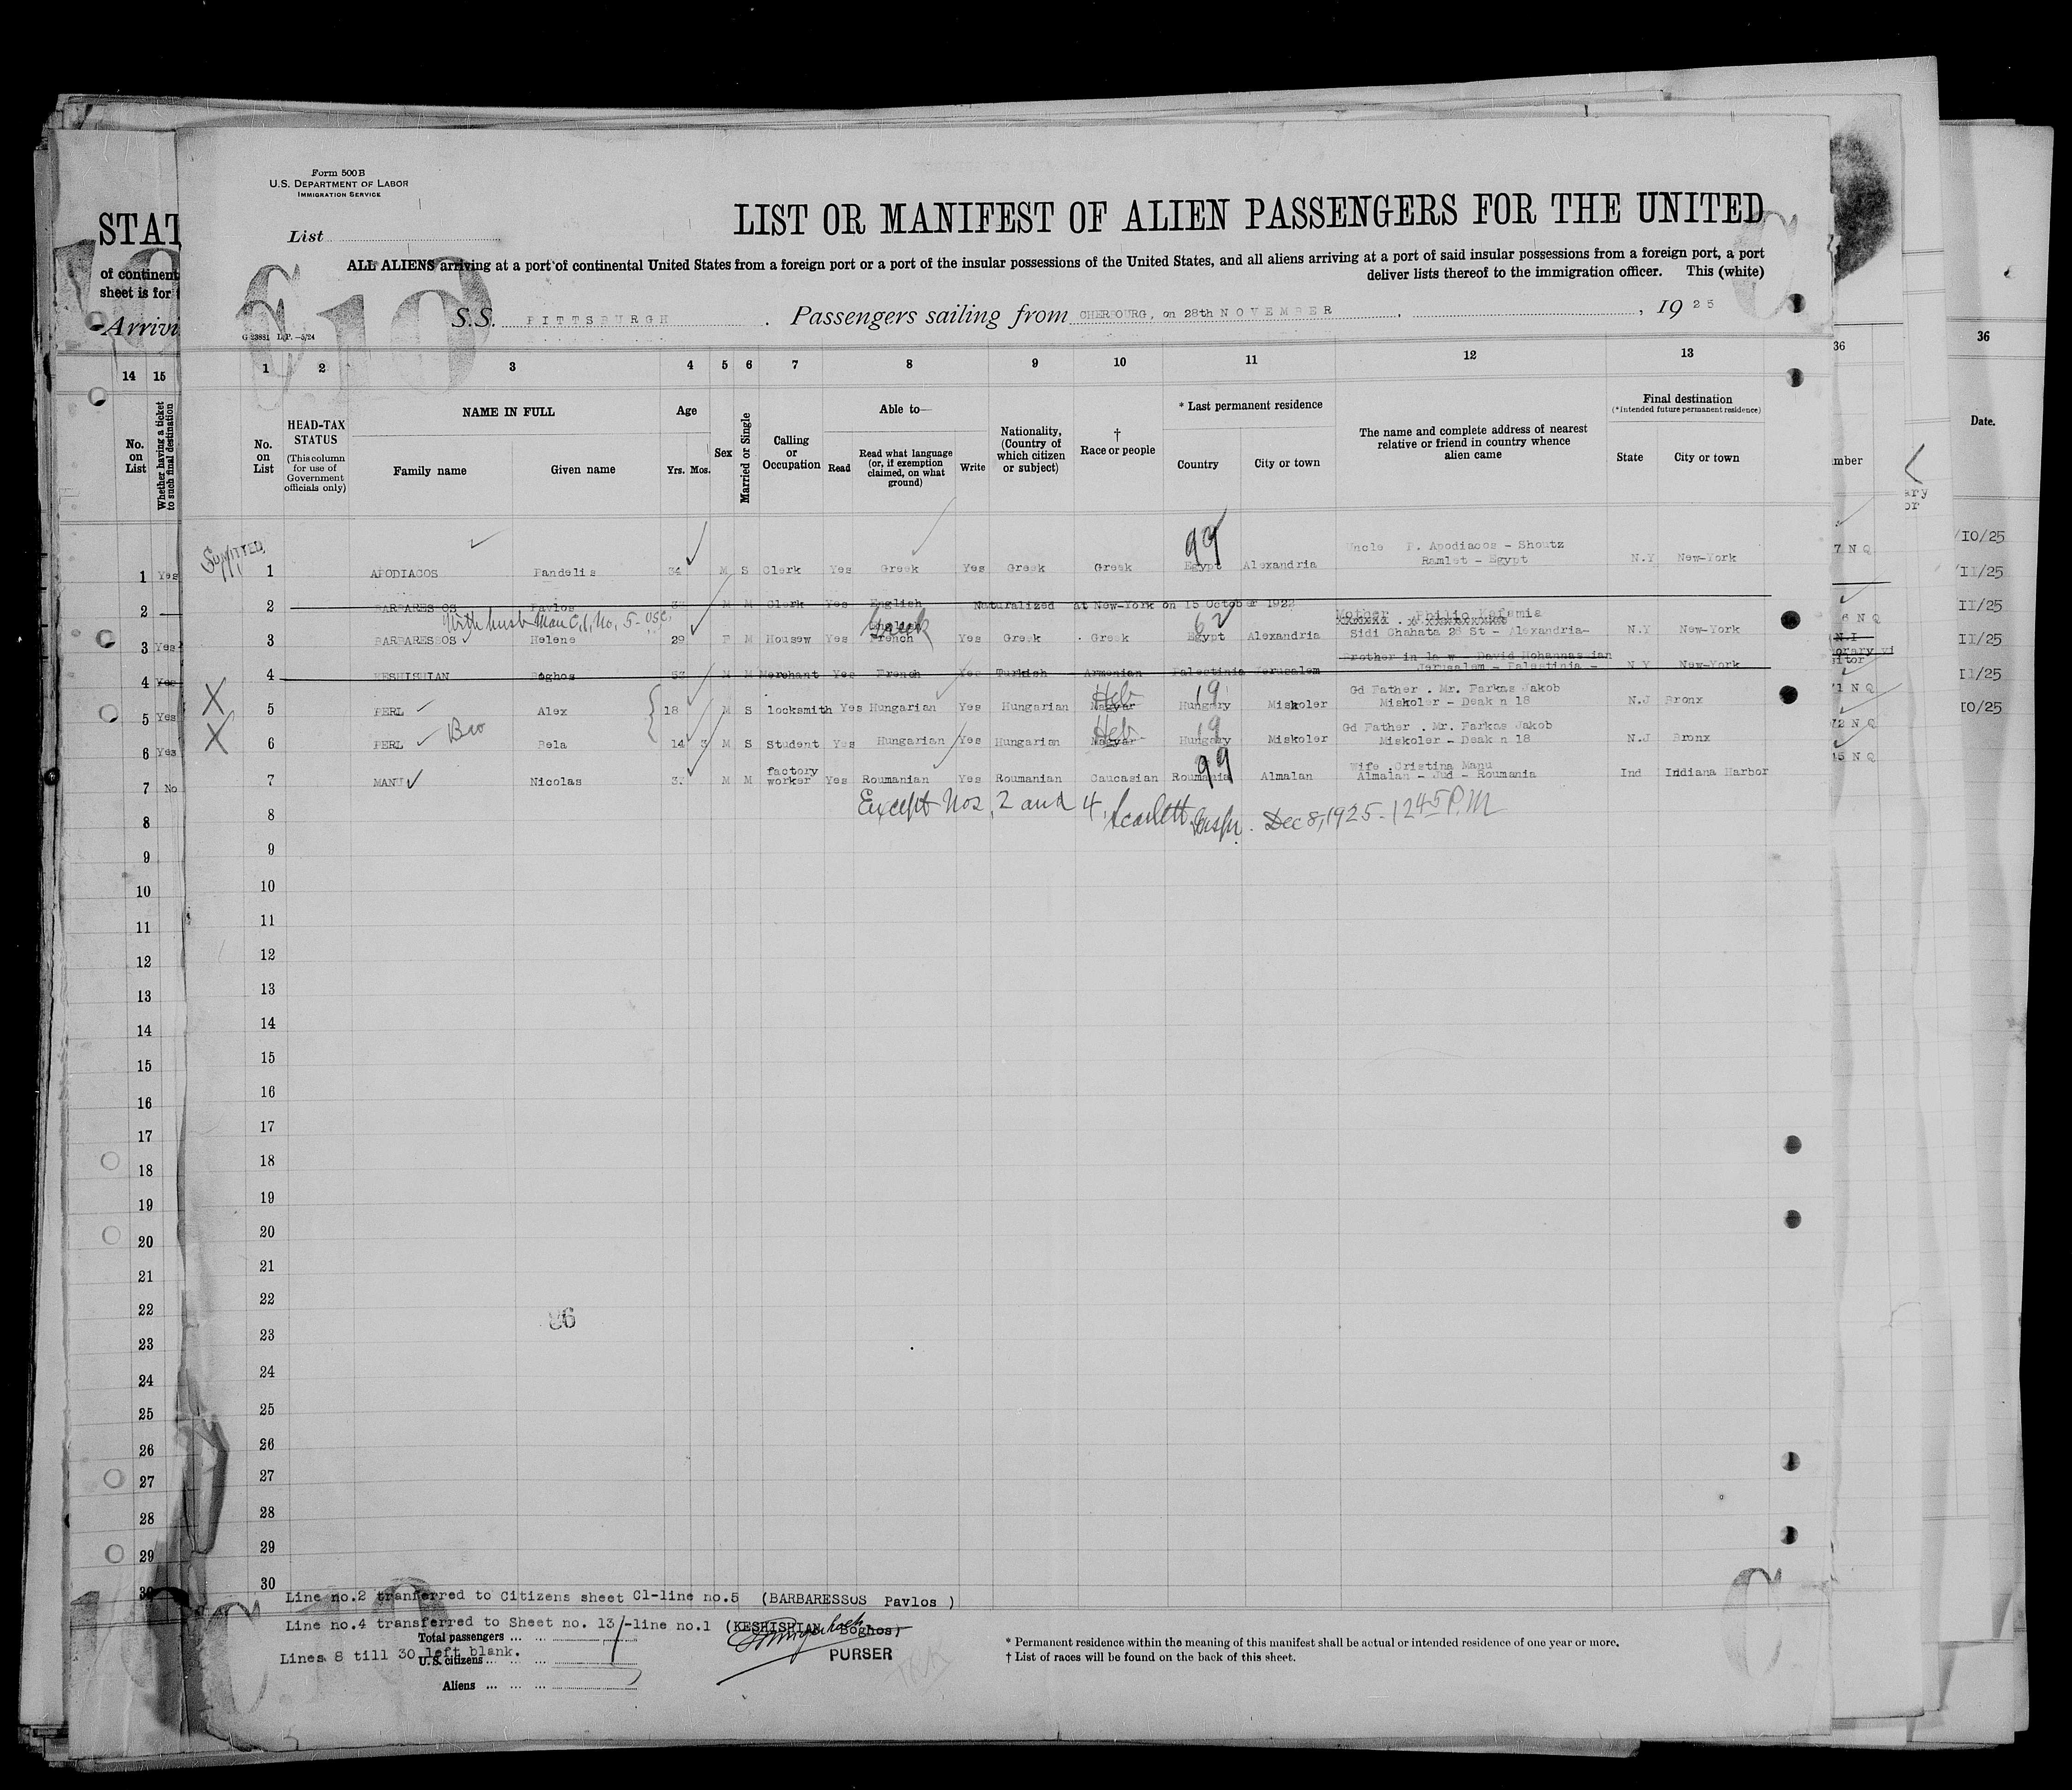 Form 500 B
U.S. DEPARTMENT OF LABOR
IMMIGRATION SERVICE
LIST OR MANIFEST OF ALIEN PASSENGERS FOR THE UNITED
List
ALL ALIENS arriving at a port of continental United States from a foreign port or a port of the insular possessions of the United States, and all aliens arriving at a port of said insular possessions from a foreign port, a port
deliver lists thereof to the immigration officer. This (white)
S.S. PITTSBURGH . Passengers sailing from CHERBOURG, on 28th NOVEMBER , , 19 25
STAT
of continent
sheet is for
Arrivi
10
1 2 3 4 5 6 7 8 9 10 11 12 13
14 15
36
36
No. on List
Whether having a ticket to such final destination
No. on List
HEAD-TAX STATUS
(This column for use of Government officials only)
NAME IN FULL
Family name
Given name
Age
Yrs. Mos.
Sex
Married or Single
Calling or Occupation
Able to—
Read
Read what language (or, if exemption claimed, on what ground)
Write
Nationality, (Country of which citizen or subject)
† Race or people
* Last permanent residence
Country
City or town
The name and complete address of nearest relative or friend in country whence alien came
Final destination
(*intended future permanent residence)
State
City or town
Date.
99
1 APODIACOS Pandelis 34 M S Clerk Yes Greek Yes Greek Greek Egypt Alexandria Uncle P. Apodiacos - Shoutz Ramlet - Egypt N.Y New-York
2 BARBARESSOS Pavlos M M Clerk Yes English Naturalized at New-York on 15 October 1922
With husb Man C, 1, No, 5 - USC,
3 BARBARESSOS Helene 29 F M Housew Yes French Greek Yes Greek Greek Egypt Alexandria Mother . Philio Kafamia Sidi Chahata 28 St - Alexandria- N.Y New-York
4 KESHISHIAN Boghos 57 M M Merchant Yes French Yes Turkish Armenian Palestinia Jerusalem Brother in law - David Hohannessian Jerusalem - Palestinia - N Y New-York
5 PERL Alex 18 M S locksmith Yes Hungarian Yes Hungarian Magyar Heb Hungary 19 Miskoler Gd Father . Mr. Farkas Jakob Miskoler - Deak n 18 N.J Bronx
6 PERL Bro Bela 14 3 M S Student Yes Hungarian Yes Hungarian Magyar Heb Hungary 19 Miskoler Gd Father . Mr. Farkas Jakob Miskoler - Deak n 18 N.J Bronx
7 MANU Nicolas M M factory worker Yes Roumanian Yes Roumanian Caucasian Roumania 99 Almalan Wife . Cristina Manu Almalan - Jud - Roumania Ind Indiana Harbor
Except Nos, 2 and 4, Scarlett, Inspr. Dec 8, 1925 - 1245 P.M
8
9
10
11
12
13
14
15
16
17
18
19
20
21
22
86
23
24
25
26
27
28
29
30
Line no.2 tranferred to Citizens sheet Cl-line no.5 (BARBARESSUS Pavlos )
Line no.4 transferred to Sheet no. 13/-line no.1 (KESHISHIAN Boghos)
Total passengers ... ...
Lines 8 till 30 left blank.
U.S. citizens ... ...
Aliens ... ... ...
PURSER
* Permanent residence within the meaning of this manifest shall be actual or intended residence of one year or more.
† List of races will be found on the back of this sheet.